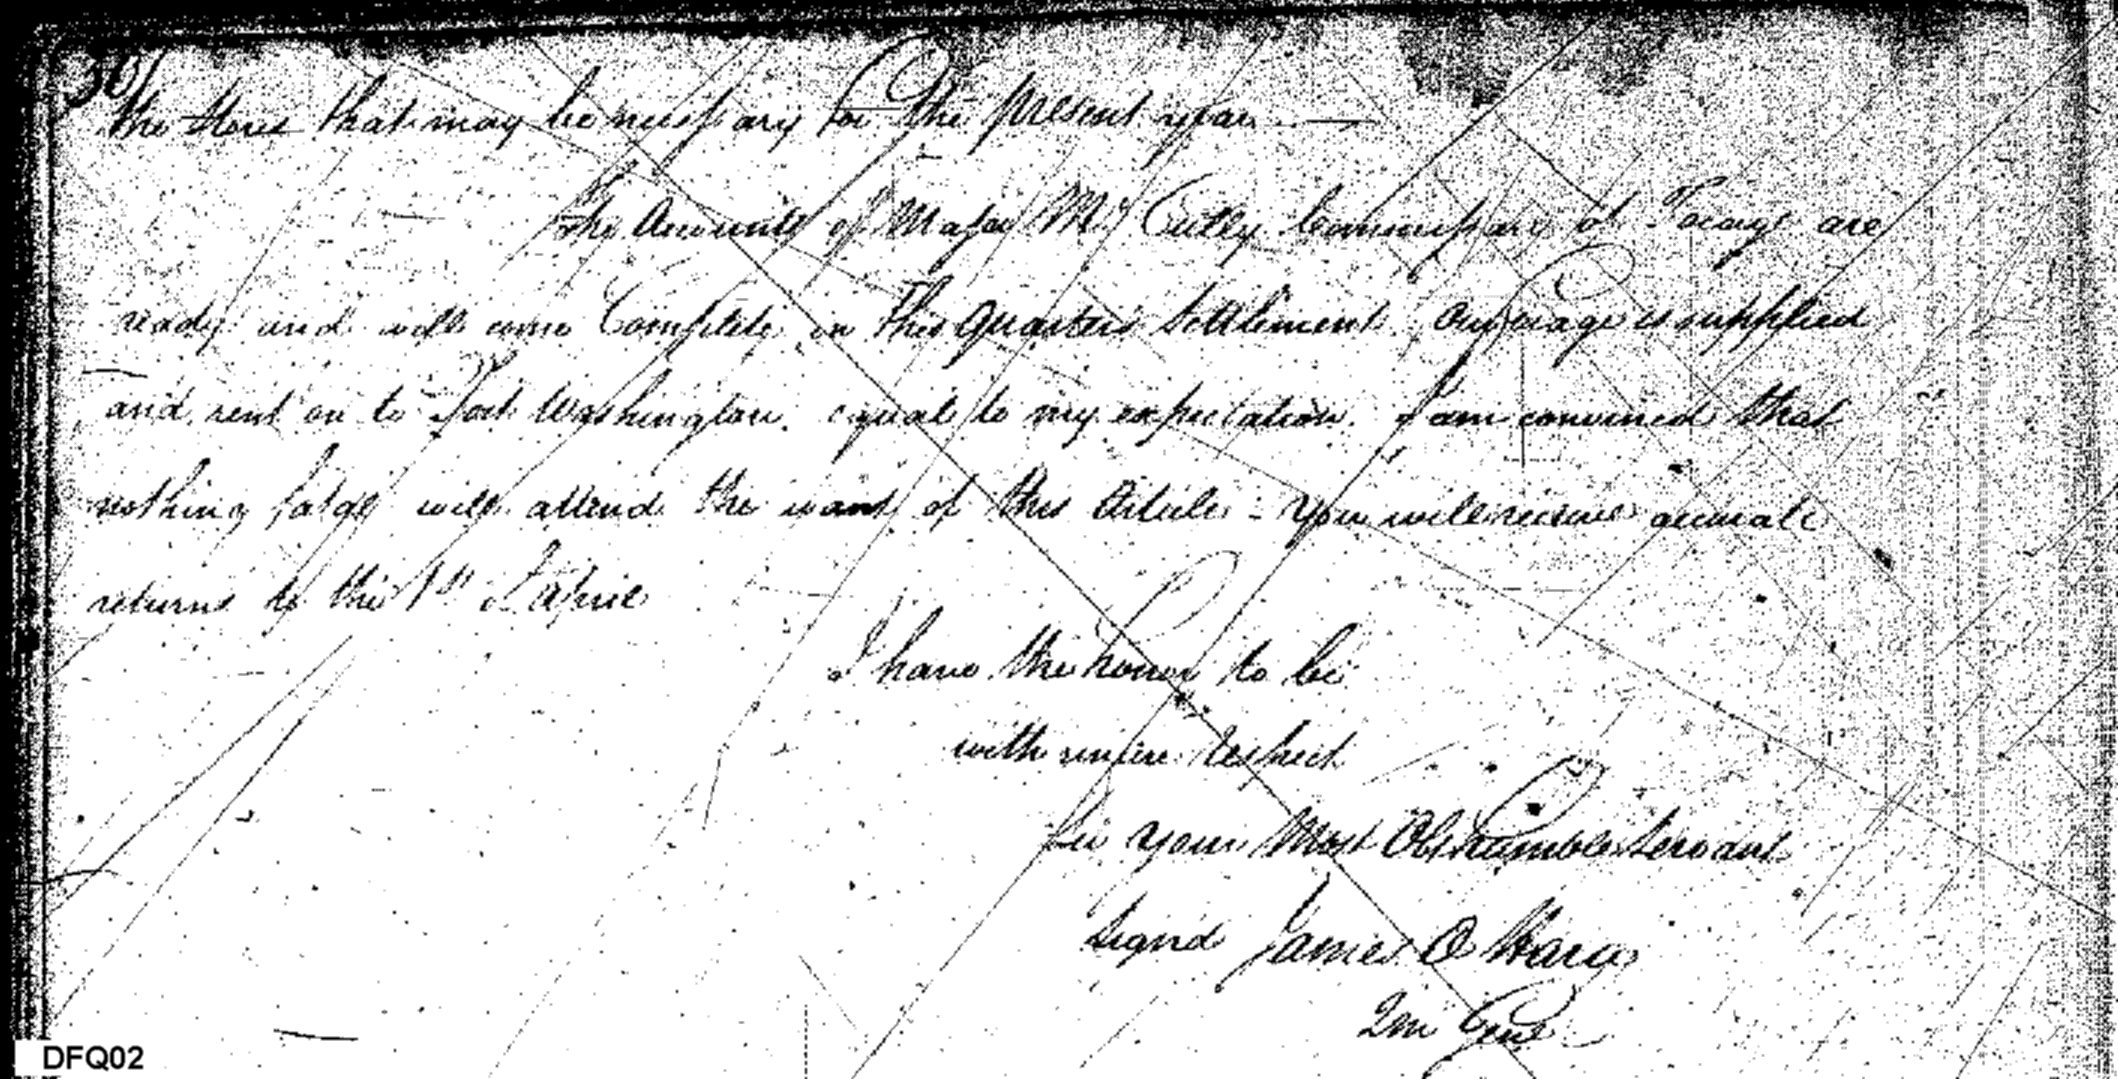 301
the stores that may be necessary for the present year
The Accounts of Major Mc Cully Commissary of Forage are
ready and will come Complete in this Quarters Settlement. Our forage is supplied
and sent on to Fort Washington equal to my expectation. I am convinced that
nothing fatal will attend the want of this Article - You will receive accurate
returns to the 1st of April
I have the honor to be
with sincere respect
Sir your Most Obt humble Servant
Signd James O Hara
Qm Genl
DFQ02